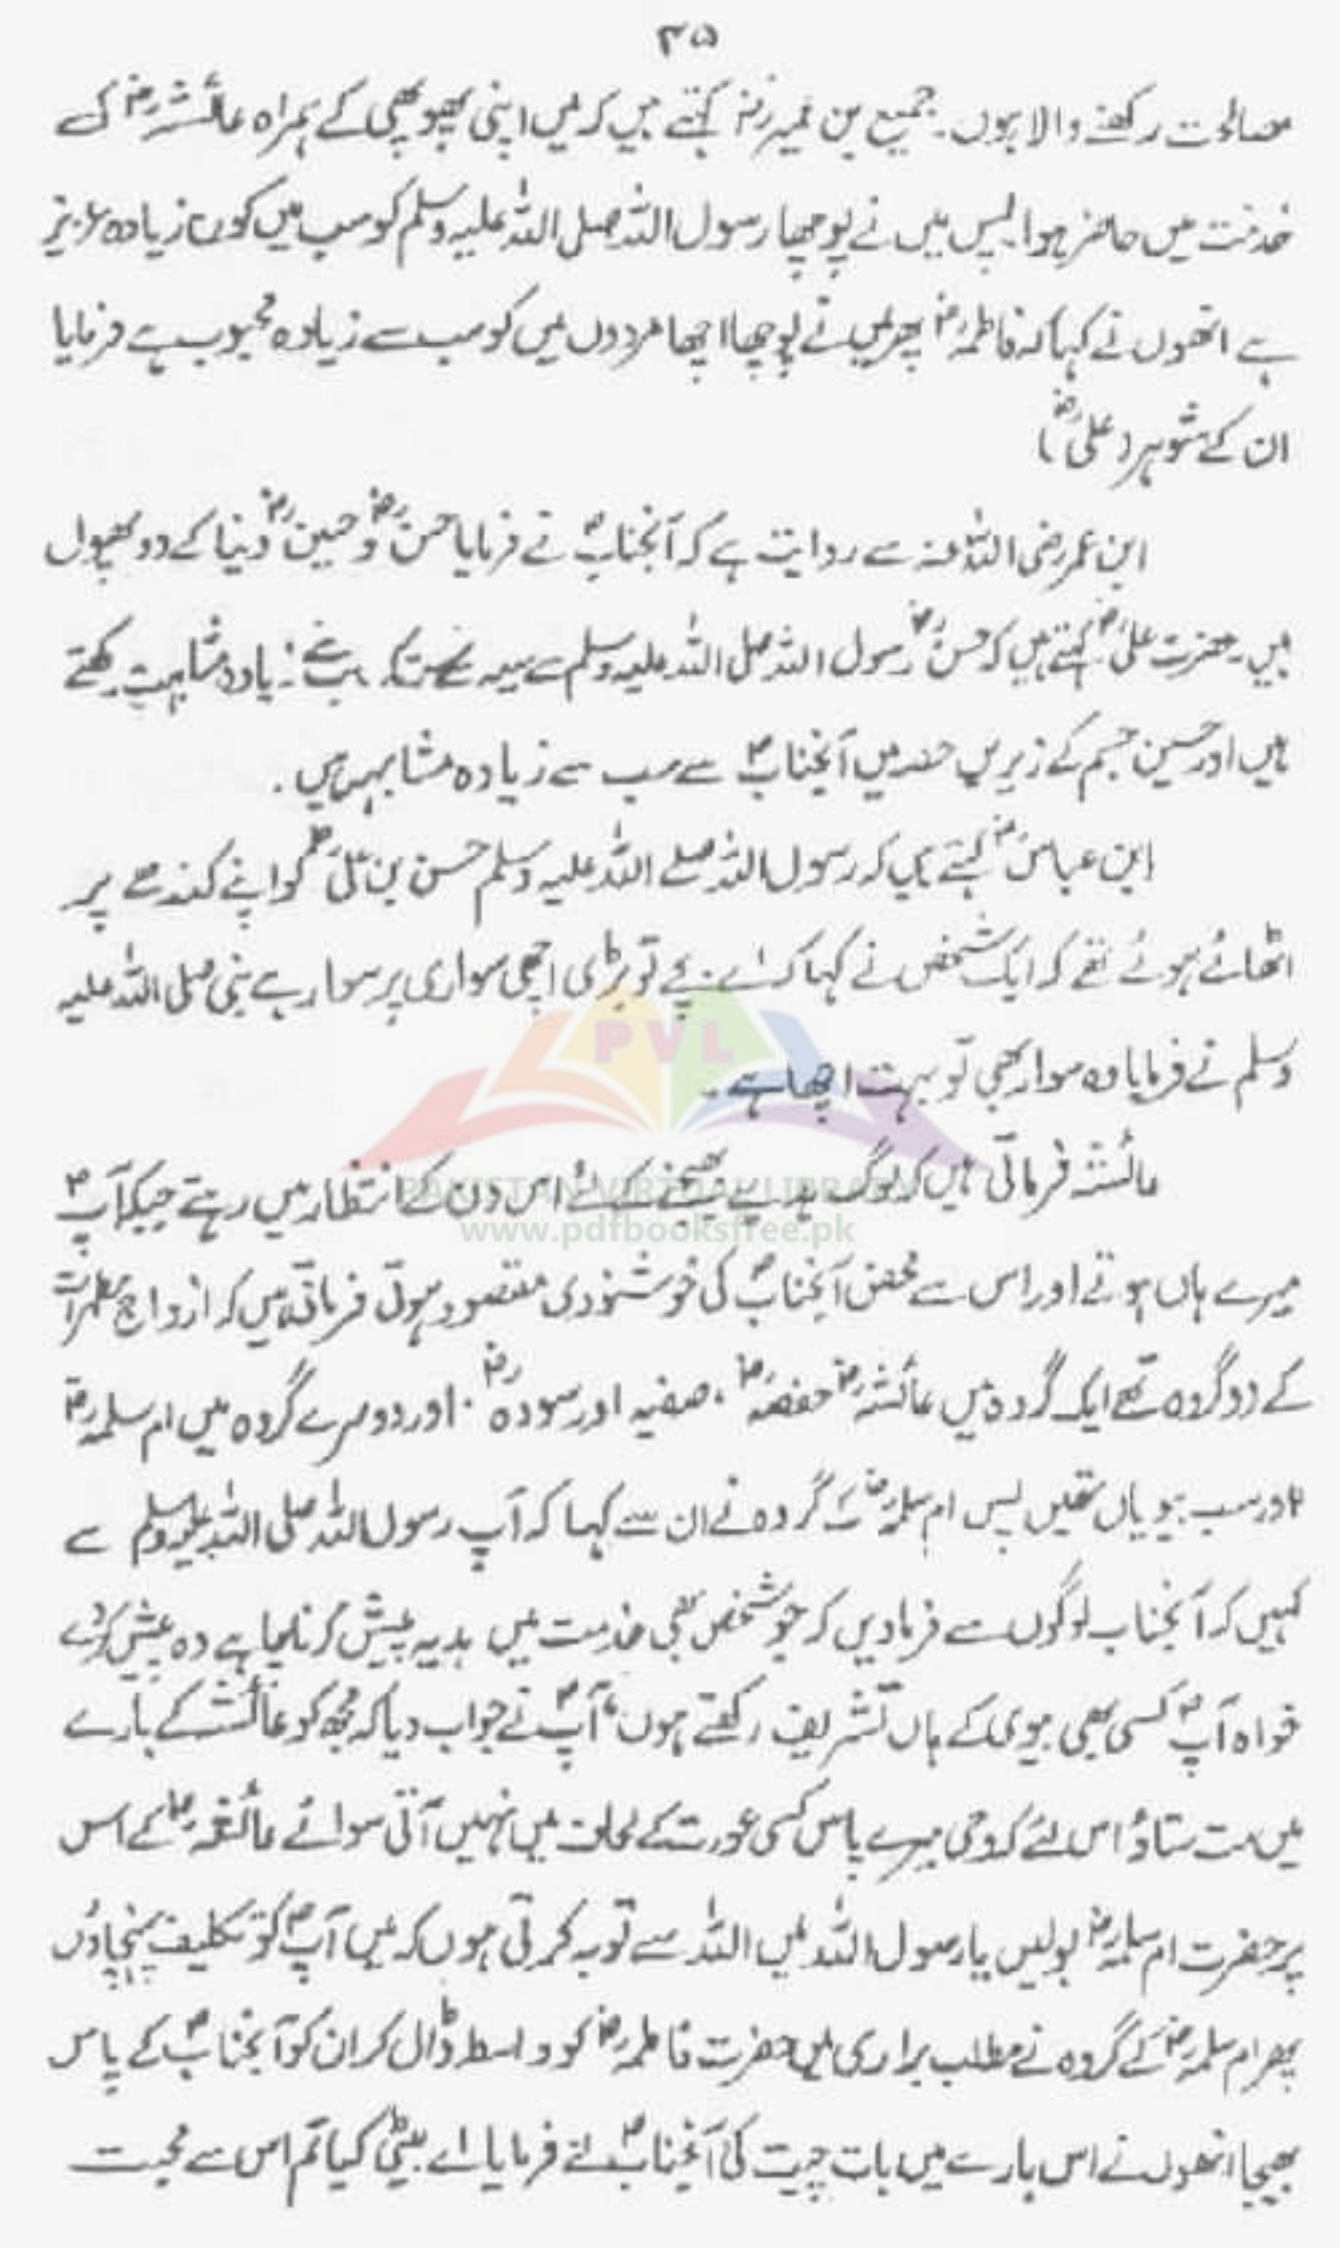 ۳۵
مصالحت رکھنے والا ہوں۔ جمیع بن عمیر رضؓ کہتے ہیں کہ میں اپنی پھوپھی کے ہمراہ عائشہ رضؓ کی
خدمت میں حاضر ہوا پس میں نے پوچھا رسول اللہ صلی اللہ علیہ وسلم کو سب میں کون زیادہ عزیز
ہے انھوں نے کہا کہ فاطمہ رضؓ پھر میں نے پوچھا اچھا مردوں میں کو سب سے زیادہ محبوب ہے فرمایا
ان کے شوہر (علی رضؓ)
ابن عمر رضی اللہ عنہ سے روایت ہے کہ آنجنابؐ نے فرمایا حسن رضؓ و حسین رضؓ دنیا کے دو پھول
ہیں۔ حضرت علی رضؓ کہتے ہیں کہ حسن رضؓ رسول اللہ صلی اللہ علیہ وسلم سے سینہ تک زیادہ مشابہت رکھتے
ہیں اور حسین جسم کے زیریں حصہ میں آنجنابؐ سے سب سے زیادہ مشابہ ہیں۔
ابن عباس رضؓ کہتے ہیں کہ رسول اللہ صلے اللہ علیہ وسلم حسن بن علی رضؓ کو اپنے کندھے پر
اٹھائے ہوئے تھے کہ ایک شخص نے کہا کہ اے بچے تو بڑی اچھی سواری پر سوار ہے نبی صلی اللہ علیہ
وسلم نے فرمایا وہ سوار بھی تو بہت اچھا ہے۔
PVL
عائشہ فرماتی ہیں کہ لوگ ہدیے بھیجنے کے لئے اس دن کے انتظار میں رہتے جبکہ آپؐ
PAKISTAN VIRTUAL LIBRARY
www.pdfbooksfree.pk
میرے ہاں ہوتے اور اس سے محض آنجنابؐ کی خوشنودی مقصود ہوتی فرماتی ہیں کہ ازواج مطہرات
کے دو گروہ تھے ایک گروہ میں عائشہ رضؓ حفصہ رضؓ، صفیہ اور سودہ رضؓ۔ اور دوسرے گروہ میں ام سلمہ رضؓ
اور سب بیویاں تھیں پس ام سلمہ رضؓ کے گروہ نے ان سے کہا کہ آپ رسول اللہ صلی اللہ علیہ وسلم سے
کہیں کہ آنجناب لوگوں سے فرما دیں کہ جو شخص بھی خدمت میں ہدیہ پیش کرنا چاہے وہ پیش کر دے
خواہ آپؐ کسی بھی بیوی کے ہاں تشریف رکھتے ہوں، آپؐ نے جواب دیا کہ مجھ کو عائشہ کے بارے
میں مت ستاؤ اس لئے کہ وحی میرے پاس کسی عورت کے لحاف میں نہیں آتی سوائے عائشہ رضؓ کے اس
پر حضرت ام سلمہ رضؓ بولیں یا رسول اللہ میں اللہ سے توبہ کرتی ہوں کہ میں آپؐ کو تکلیف پہنچاؤں
پھر ام سلمہ رضؓ کے گروہ نے مطلب براری میں حضرت فاطمہ رضؓ کو واسطہ ڈال کر ان کو آنجنابؐ کے پاس
بھیجا انھوں نے اس بارے میں بات چیت کی آنجنابؐ نے فرمایا اے بیٹی کیا تم اس سے محبت